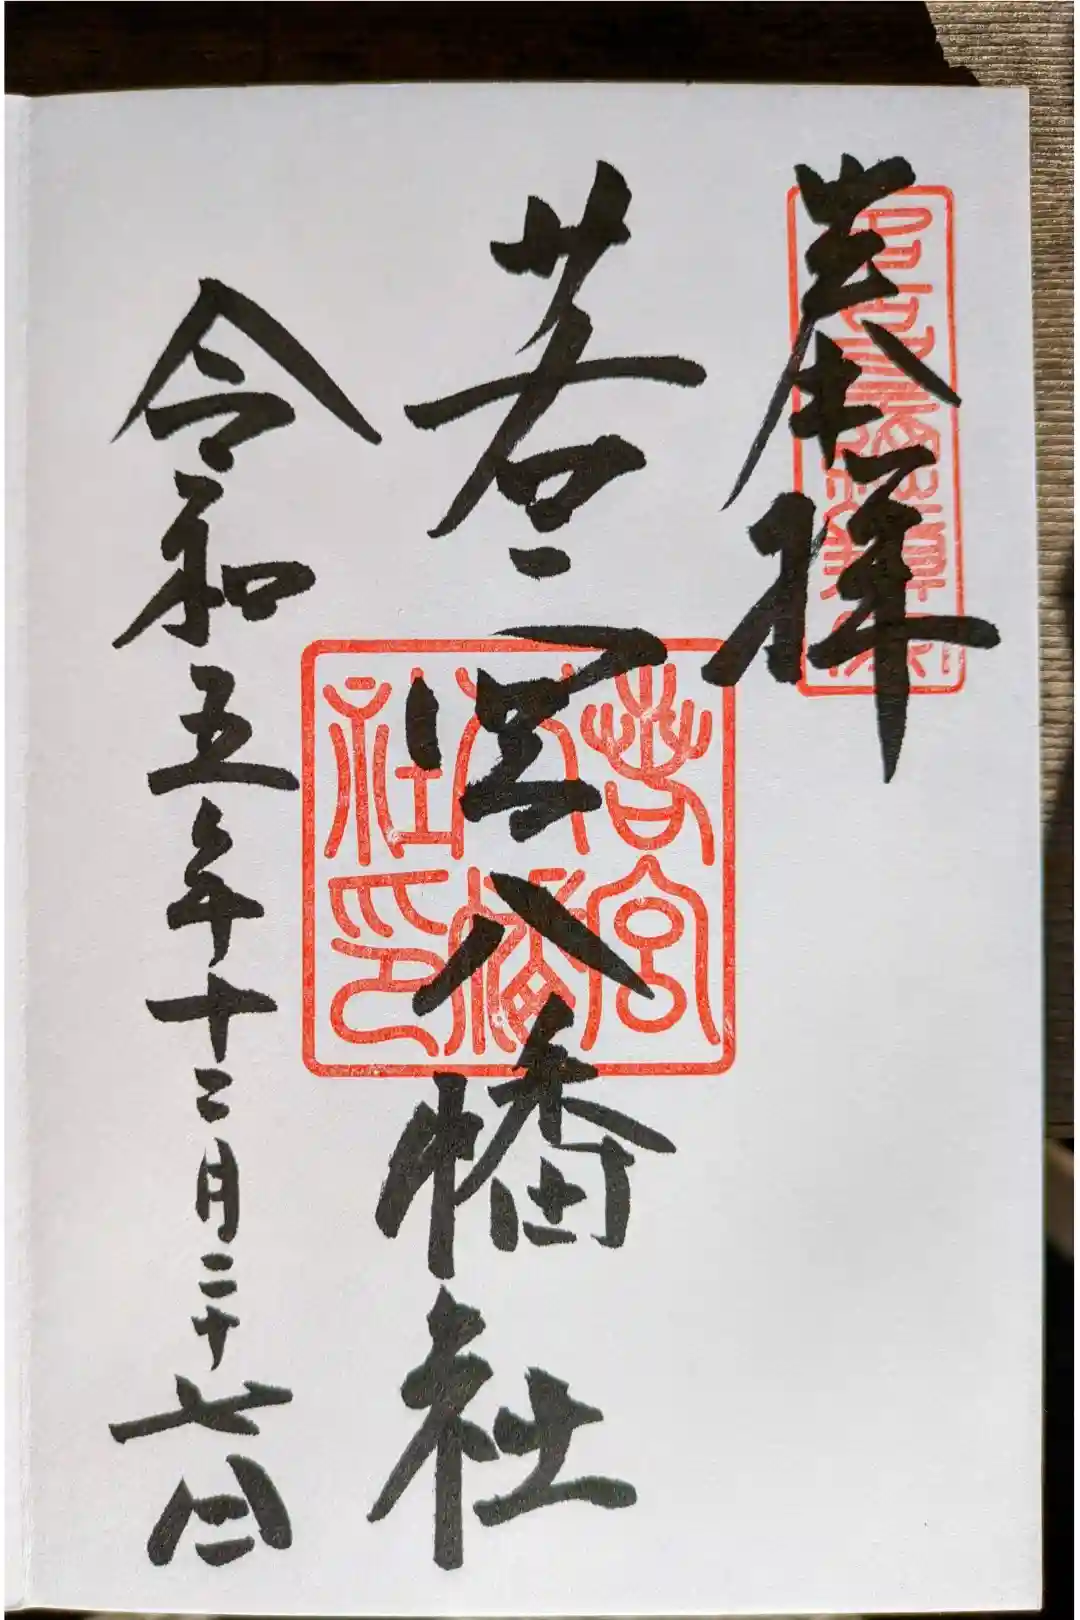 奉拝
若宮八幡社
若宮八幡社印
令和五年十二月二十七日